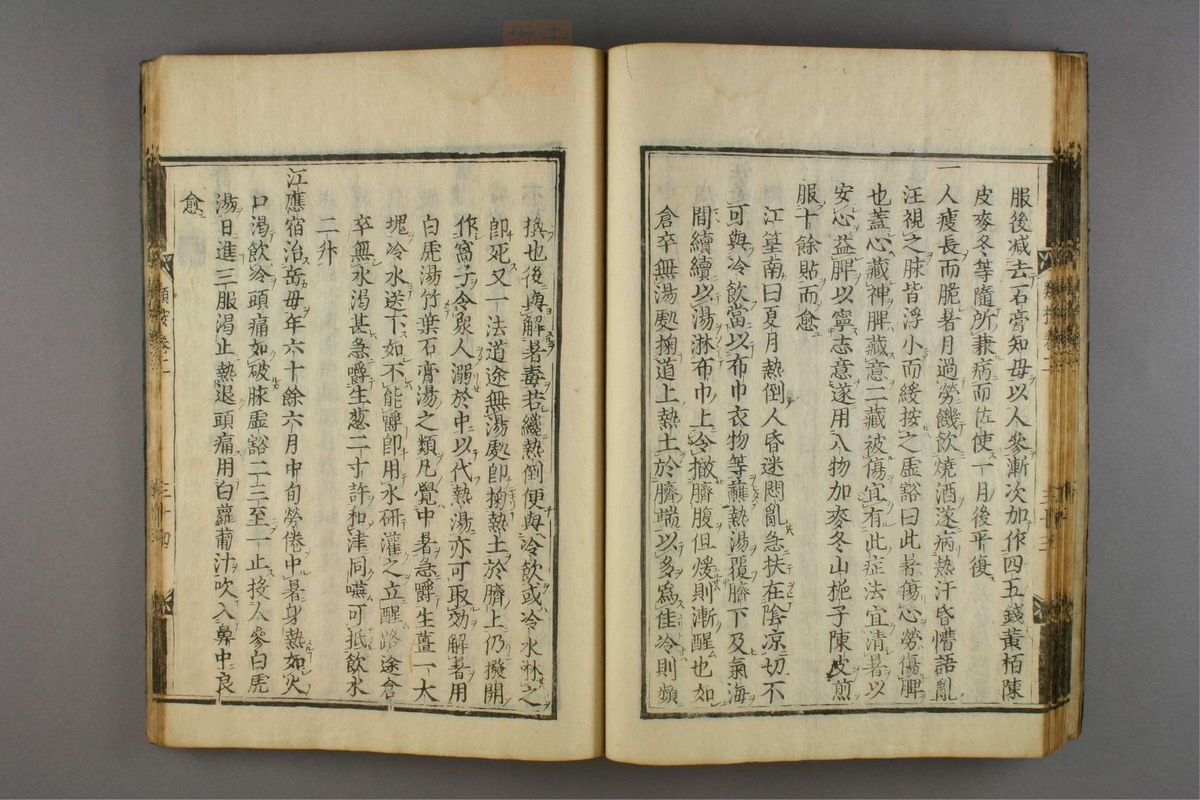 服後减去石膏知母以人參漸次加作四五錢黃栢陳
皮麥冬等隨所兼病而佐使一月後平復
一人瘦長而脆暑月過勞饑飲燒酒遂病熱汗昏懵語亂
汪視之脉皆浮小而緩按之虛豁曰此暑傷心勞傷脾
也蓋心藏神脾藏意二藏被傷宜有此症法宜清暑以
安心益脾以寧志意遂用八物加麥冬山梔子陳皮煎
服十餘貼而愈
江篁南曰夏月熱倒人昏迷悶亂急扶在陰凉切不
可與冷飲當以布巾衣物等蘸熱湯覆臍下及氣海
間續續以湯淋布巾上令撤臍腹但煖則漸醒也如
倉卒無湯處掬道上熱土於臍端以多爲佳冷則頻
換也後與解暑毒若纔熱倒便與冷飲或冷水淋之
卽死又一法道途無湯處卽掬熱土於臍上仍撥開
作窩子令衆人溺於中以代熱湯亦可取効解暑用
白虎湯竹葉石膏湯之類凡覺中暑急嚼生薑一大
塊冷水送下如不能嚼卽用水研灌之立醒路途倉
卒無水渴甚急嚼生葱二寸許和津同嚥可抵飲水
二升
江應宿治岳母年六十餘六月中旬勞倦中暑身熱如火
口渴飲冷頭痛如破脉虛豁二三至一止投人參白虎
湯日進三服渴止熱退頭痛用白蘿蔔汁吹入鼻中良
愈